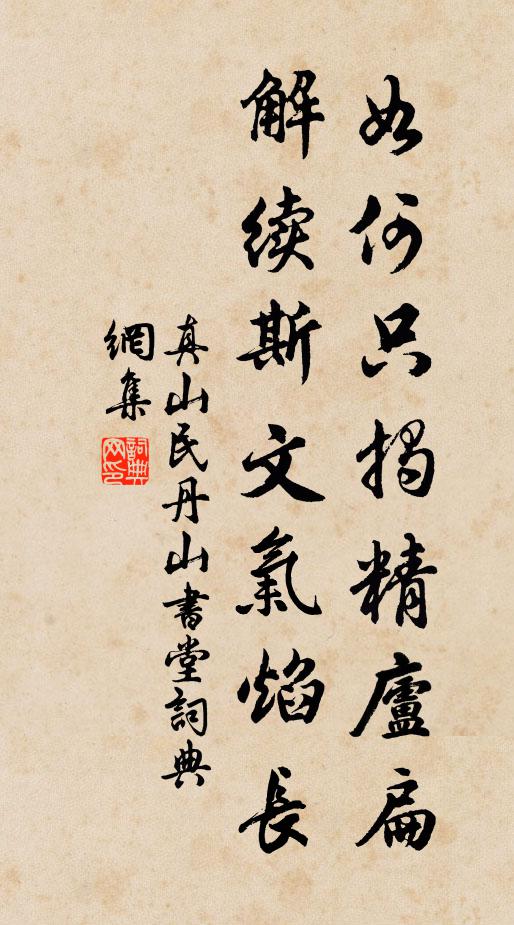 如何只揭精廬扁
解续斯文氣焰長
真山民丹山書堂詞典
網集
詞典网印